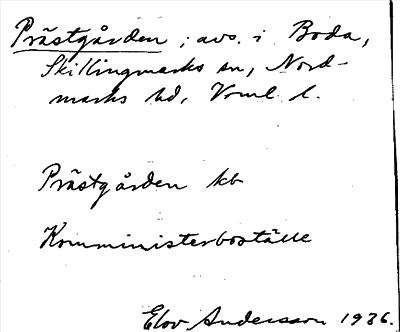 Prästgården ; avs. i Boda,
Skillingmarks sn, Nord-
marks hd, Vrml. l.
Prästgården kb
Komministerboställe
Elov Andersson 1936.